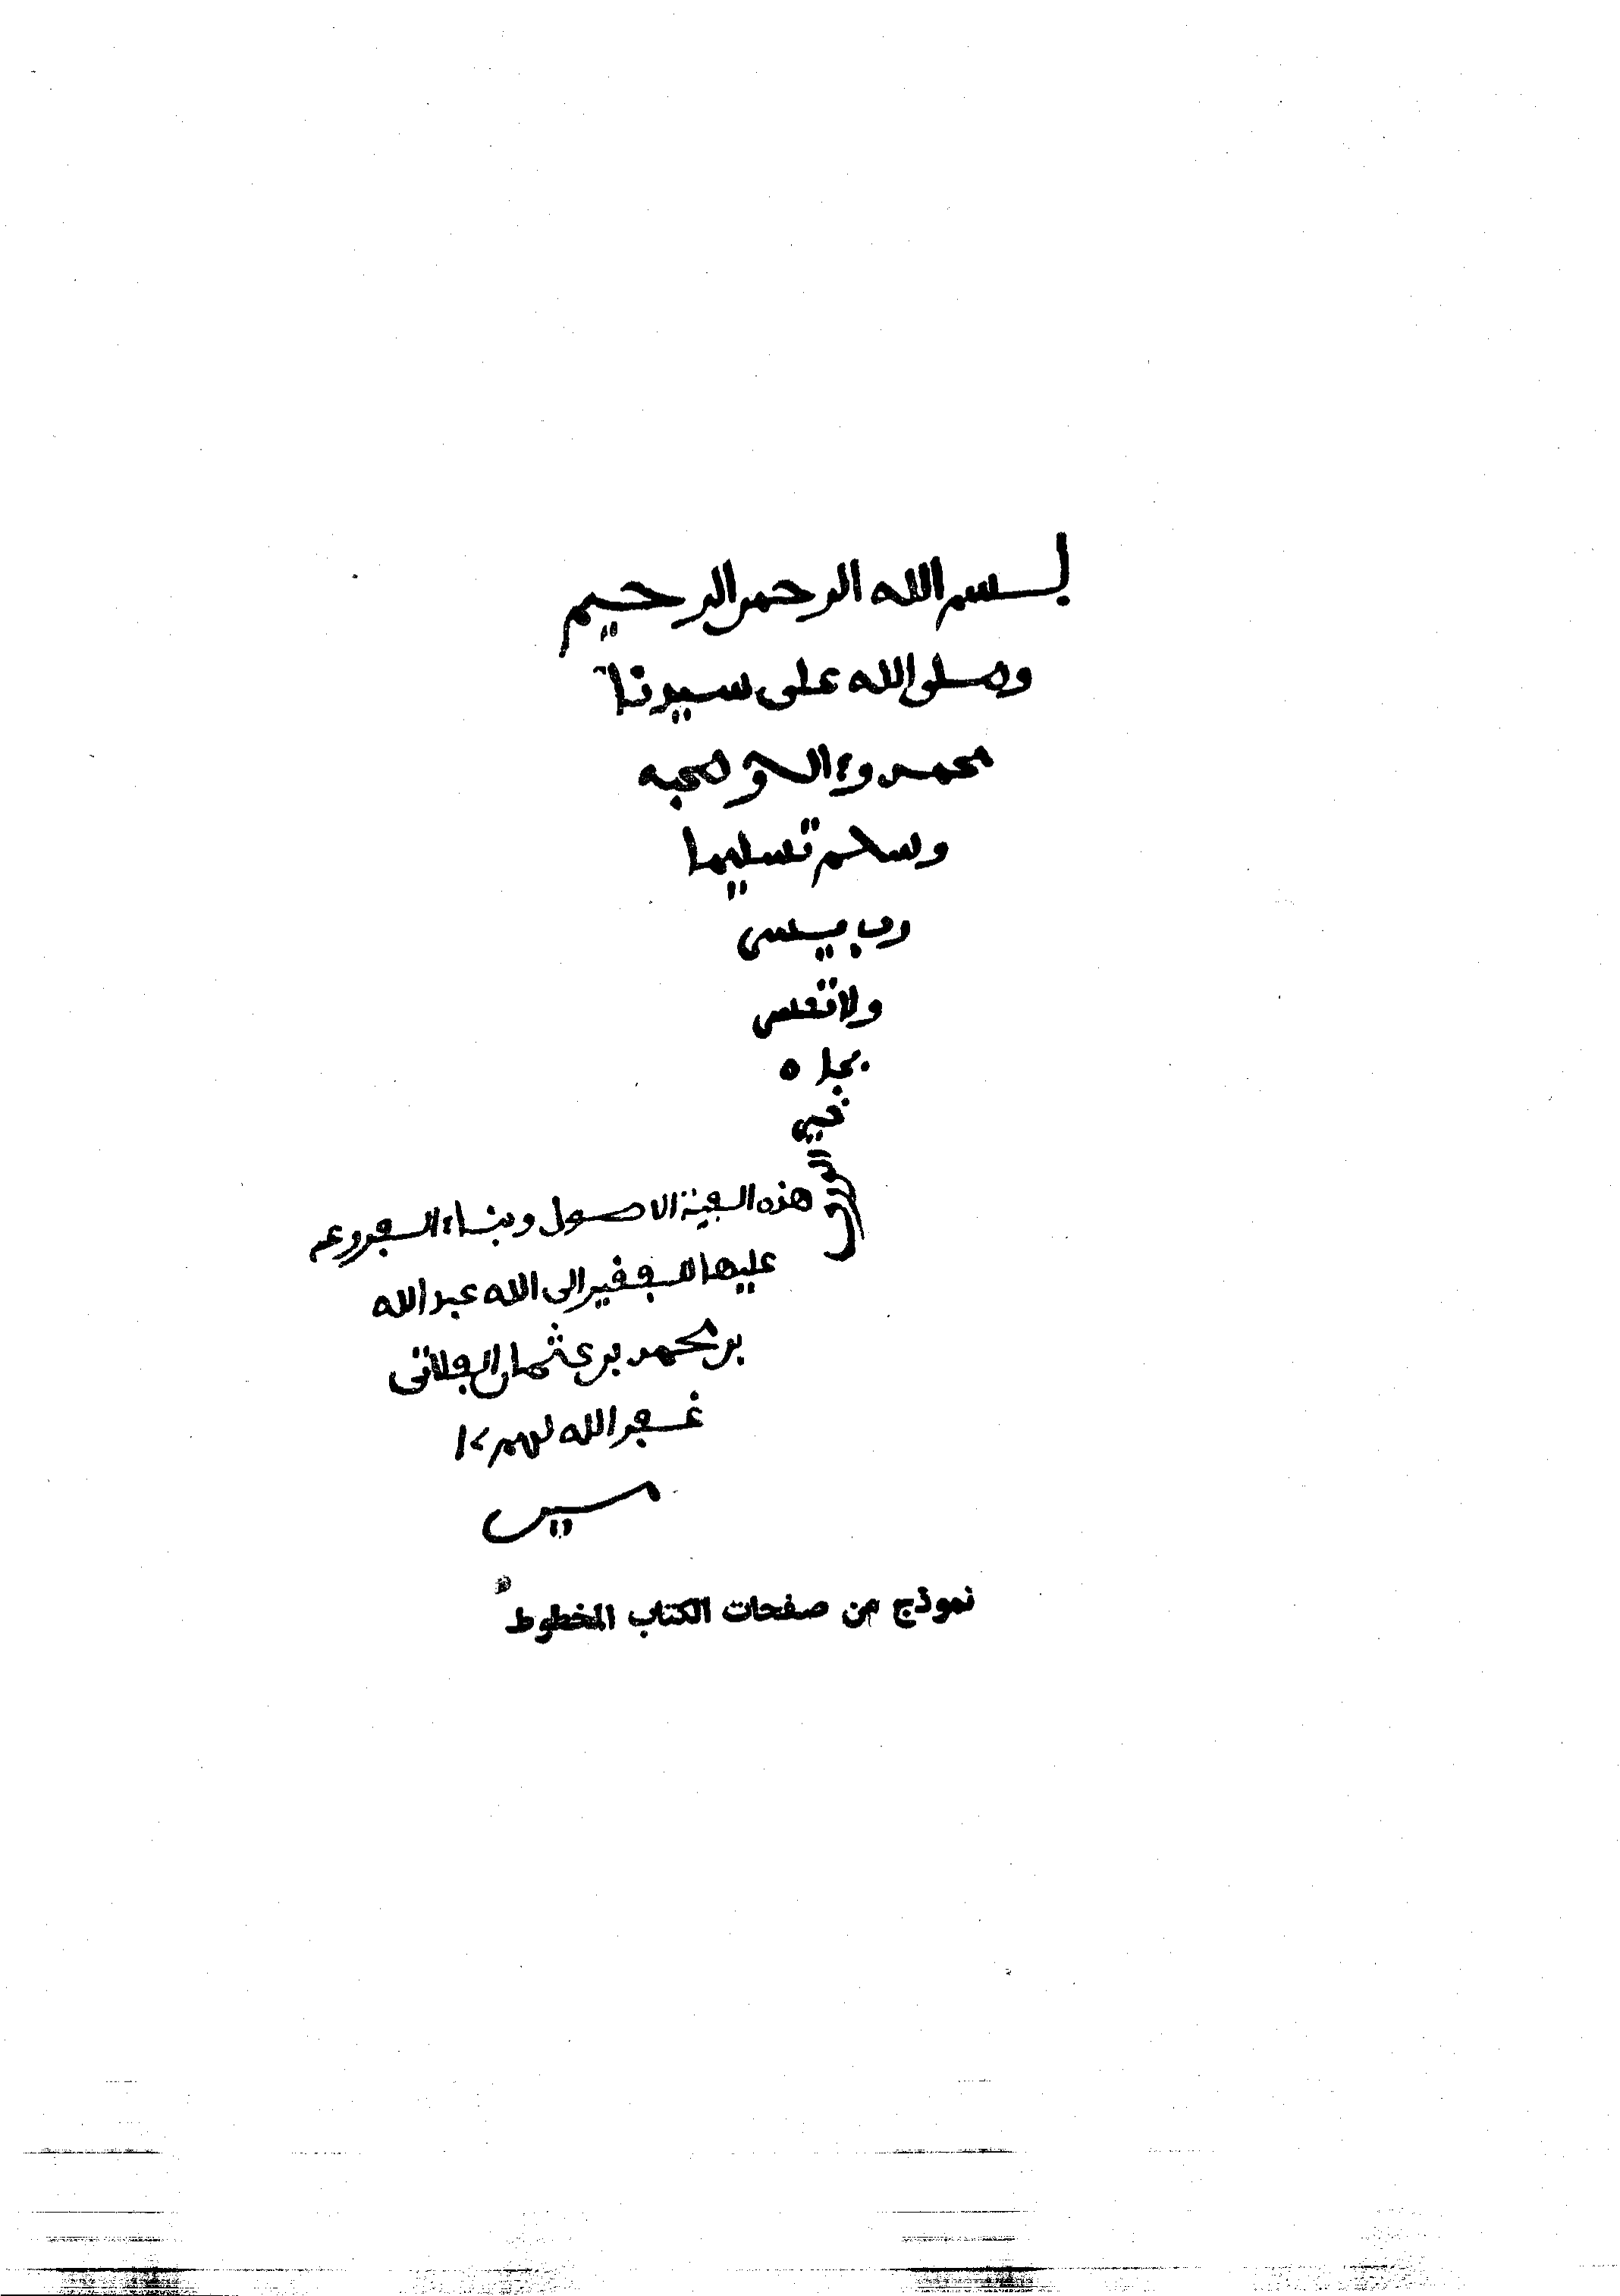 بسم الله الرحمن الرحيم
وصلى الله على سيدنا
محمد وءاله وصحبه
وسلم تسليما
رب يسر
ولا تعسر
هذه الاصول وبناء الفروع
عليها الفقير الى الله عبد الله
بن محمد بن عثمان
غفر الله لهم
نموذج من صفحات الكتاب المخطوط